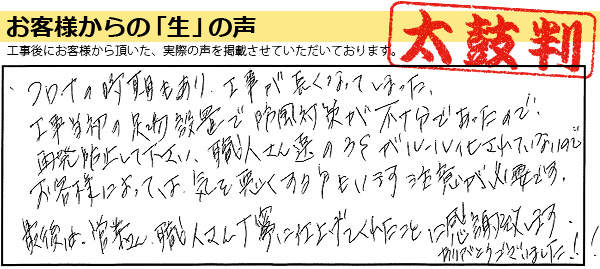 お客様からの「生」の声
工事後にお客様から頂いた、実際の声を掲載させていただいております。
太鼓判
・コロナの時期もあり、工事が長くなってしまった。
工事当初の足場設置で防風対策が不十分であったので、
再発防止して下さい、職人さん達の がルール化されていないので
お客様によっては、気を悪くする方もいます注意が必要です。
最後は、営業さん、職人さん丁寧に仕上げてくれたことに感謝致します。
ありがとうございました!!